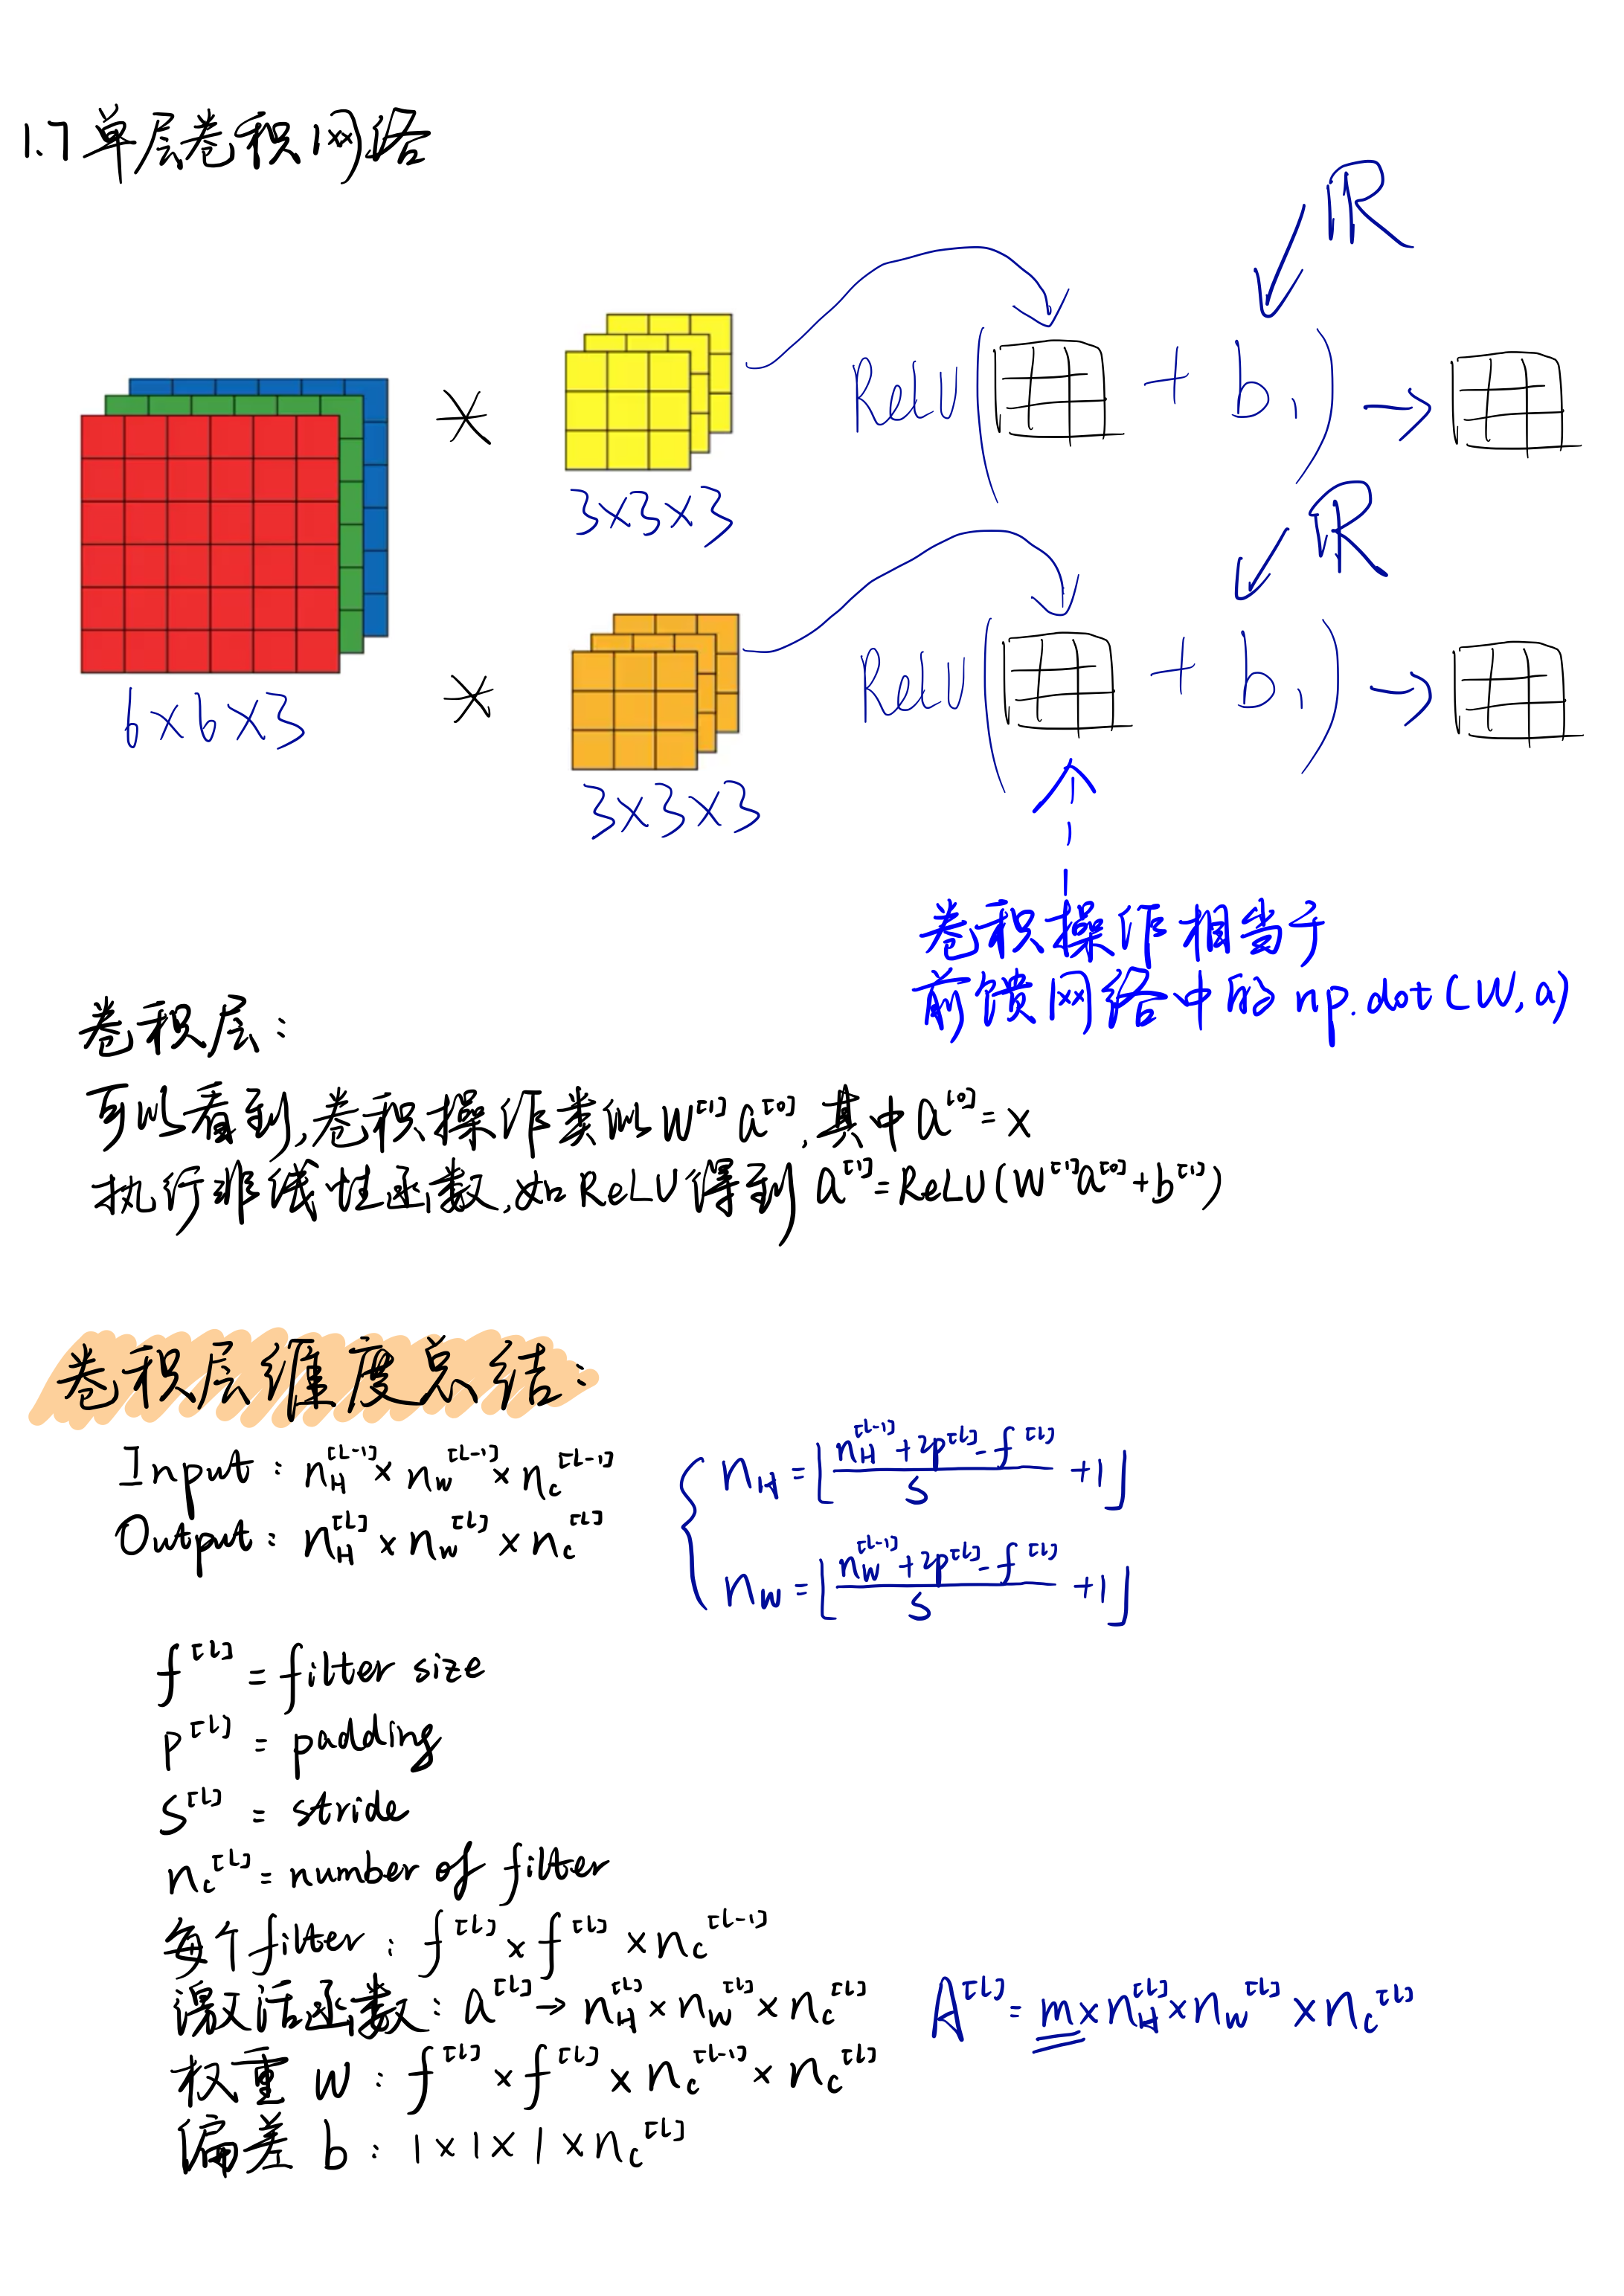 1.7 单层卷积网络
ℝ
* 3×3×3 ReLU( + b₁) →
ℝ
6×6×3
* 3×3×3 ReLU( + b₁) →
卷积操作相当于
前馈网络中的 np.dot(W,a)
卷积层:
可以看到,卷积操作类似W^[1]a^[0],其中a^[0]=x
执行非线性函数,如ReLU得到 a^[1]=ReLU(W^[1]a^[0]+b^[1])
卷积层维度总结:
Input: n_H^[l-1]×n_w^[l-1]×n_c^[l-1]
Output: n_H^[l]×n_w^[l]×n_c^[l]
n_H=⌊(n_H^[l-1]+2p^[l]-f^[l])/s +1⌋
n_W=⌊(n_W^[l-1]+2p^[l]-f^[l])/s +1⌋
f^[l]=filter size
p^[l]=padding
s^[l]=stride
n_c^[l]=number of filter
每个filter: f^[l]×f^[l]×n_c^[l-1]
激活函数: a^[l]→n_H^[l]×n_w^[l]×n_c^[l] A^[l]=m×n_H^[l]×n_w^[l]×n_c^[l]
权重 W: f^[l]×f^[l]×n_c^[l-1]×n_c^[l]
偏差 b: 1×1×1×n_c^[l]